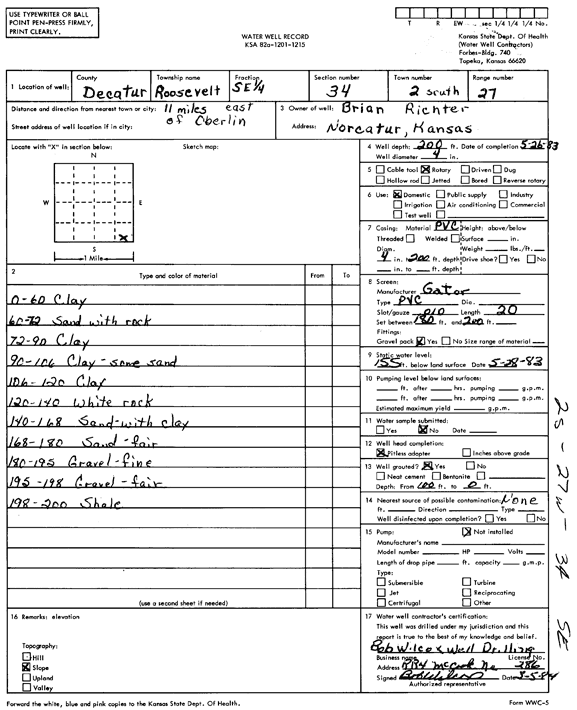 USE TYPEWRITER OR BALL
POINT PEN-PRESS FIRMLY,
PRINT CLEARLY.
WATER WELL RECORD
KSA 82a-1201-1215
T R EW sec 1/4 1/4 1/4 No.
Kansas State Dept. Of Health
(Water Well Contractors)
Forbes-Bldg. 740
Topeka, Kansas 66620
1 Location of well: County Decatur Township name Roosevelt Fraction SE1/4 Section number 34 Town number 2 south Range number 27
Distance and direction from nearest town or city: 11 miles east of Oberlin
Street address of well location if in city:
3 Owner of well: Brian Richter
Address: Norcatur, Kansas
Locate with "X" in section below: Sketch map:
N
W E
X
S
1 Mile
4 Well depth: 200 ft. Date of completion 5-26-83
Well diameter 4 in.
5 Cable tool X Rotary Driven Dug
Hollow rod Jetted Bored Reverse rotary
6 Use: X Domestic Public supply Industry
Irrigation Air conditioning Commercial
Test well
7 Casing: Material PVC Height: above/below
Threaded Welded Surface in.
Diam. Weight lbs./ft.
4 in. to 200 ft. depth Drive shoe? Yes No
in. to ft. depth
8 Screen:
Manufacturer Gator
Type PVC Dia.
Slot/gauze 010 Length 20
Set between 180 ft. and 200 ft.
Fittings:
Gravel pack Yes No Size range of material
9 Static water level:
155 ft. below land surface Date 5-28-83
10 Pumping level below land surfaces:
ft. after hrs. pumping g.p.m.
ft. after hrs. pumping g.p.m.
Estimated maximum yield g.p.m.
11 Water sample submitted:
Yes X No Date
12 Well head completion:
X Pitless adapter Inches above grade
13 Well grouted? Yes No
Neat cement Bentonite
Depth: From 100 ft. to 0 ft.
14 Nearest source of possible contamination: None
ft. Direction Type
Well disinfected upon completion? Yes No
15 Pump: X Not installed
Manufacturer's name
Model number HP Volts
Length of drop pipe ft. capacity g.m.p.
Type:
Submersible Turbine
Jet Reciprocating
Certrifugal Other
2 Type and color of material From To
0-60 Clay
60-72 Sand with rock
72-90 Clay
90-106 Clay-some sand
106-120 Clay
120-140 White rock
140-168 Sand-with clay
168-180 Sand-fair
180-195 Gravel-fine
195-198 Gravel-fair
198-200 Shale
(use a second sheet if needed)
16 Remarks: elevation
Topography:
Hill
X Slope
Upland
Valley
17 Water well contractor's certification:
This well was drilled under my jurisdiction and this
report is true to the best of my knowledge and belief.
Bob Wilcox Well Drilling
Business name License No.
Address RR4 McCook Ne 286
Signed Date 3-5-84
Authorized representative
2S-27W-34 SE
Forward the white, blue and pink copies to the Kansas State Dept. Of Health.
Form WWC-5